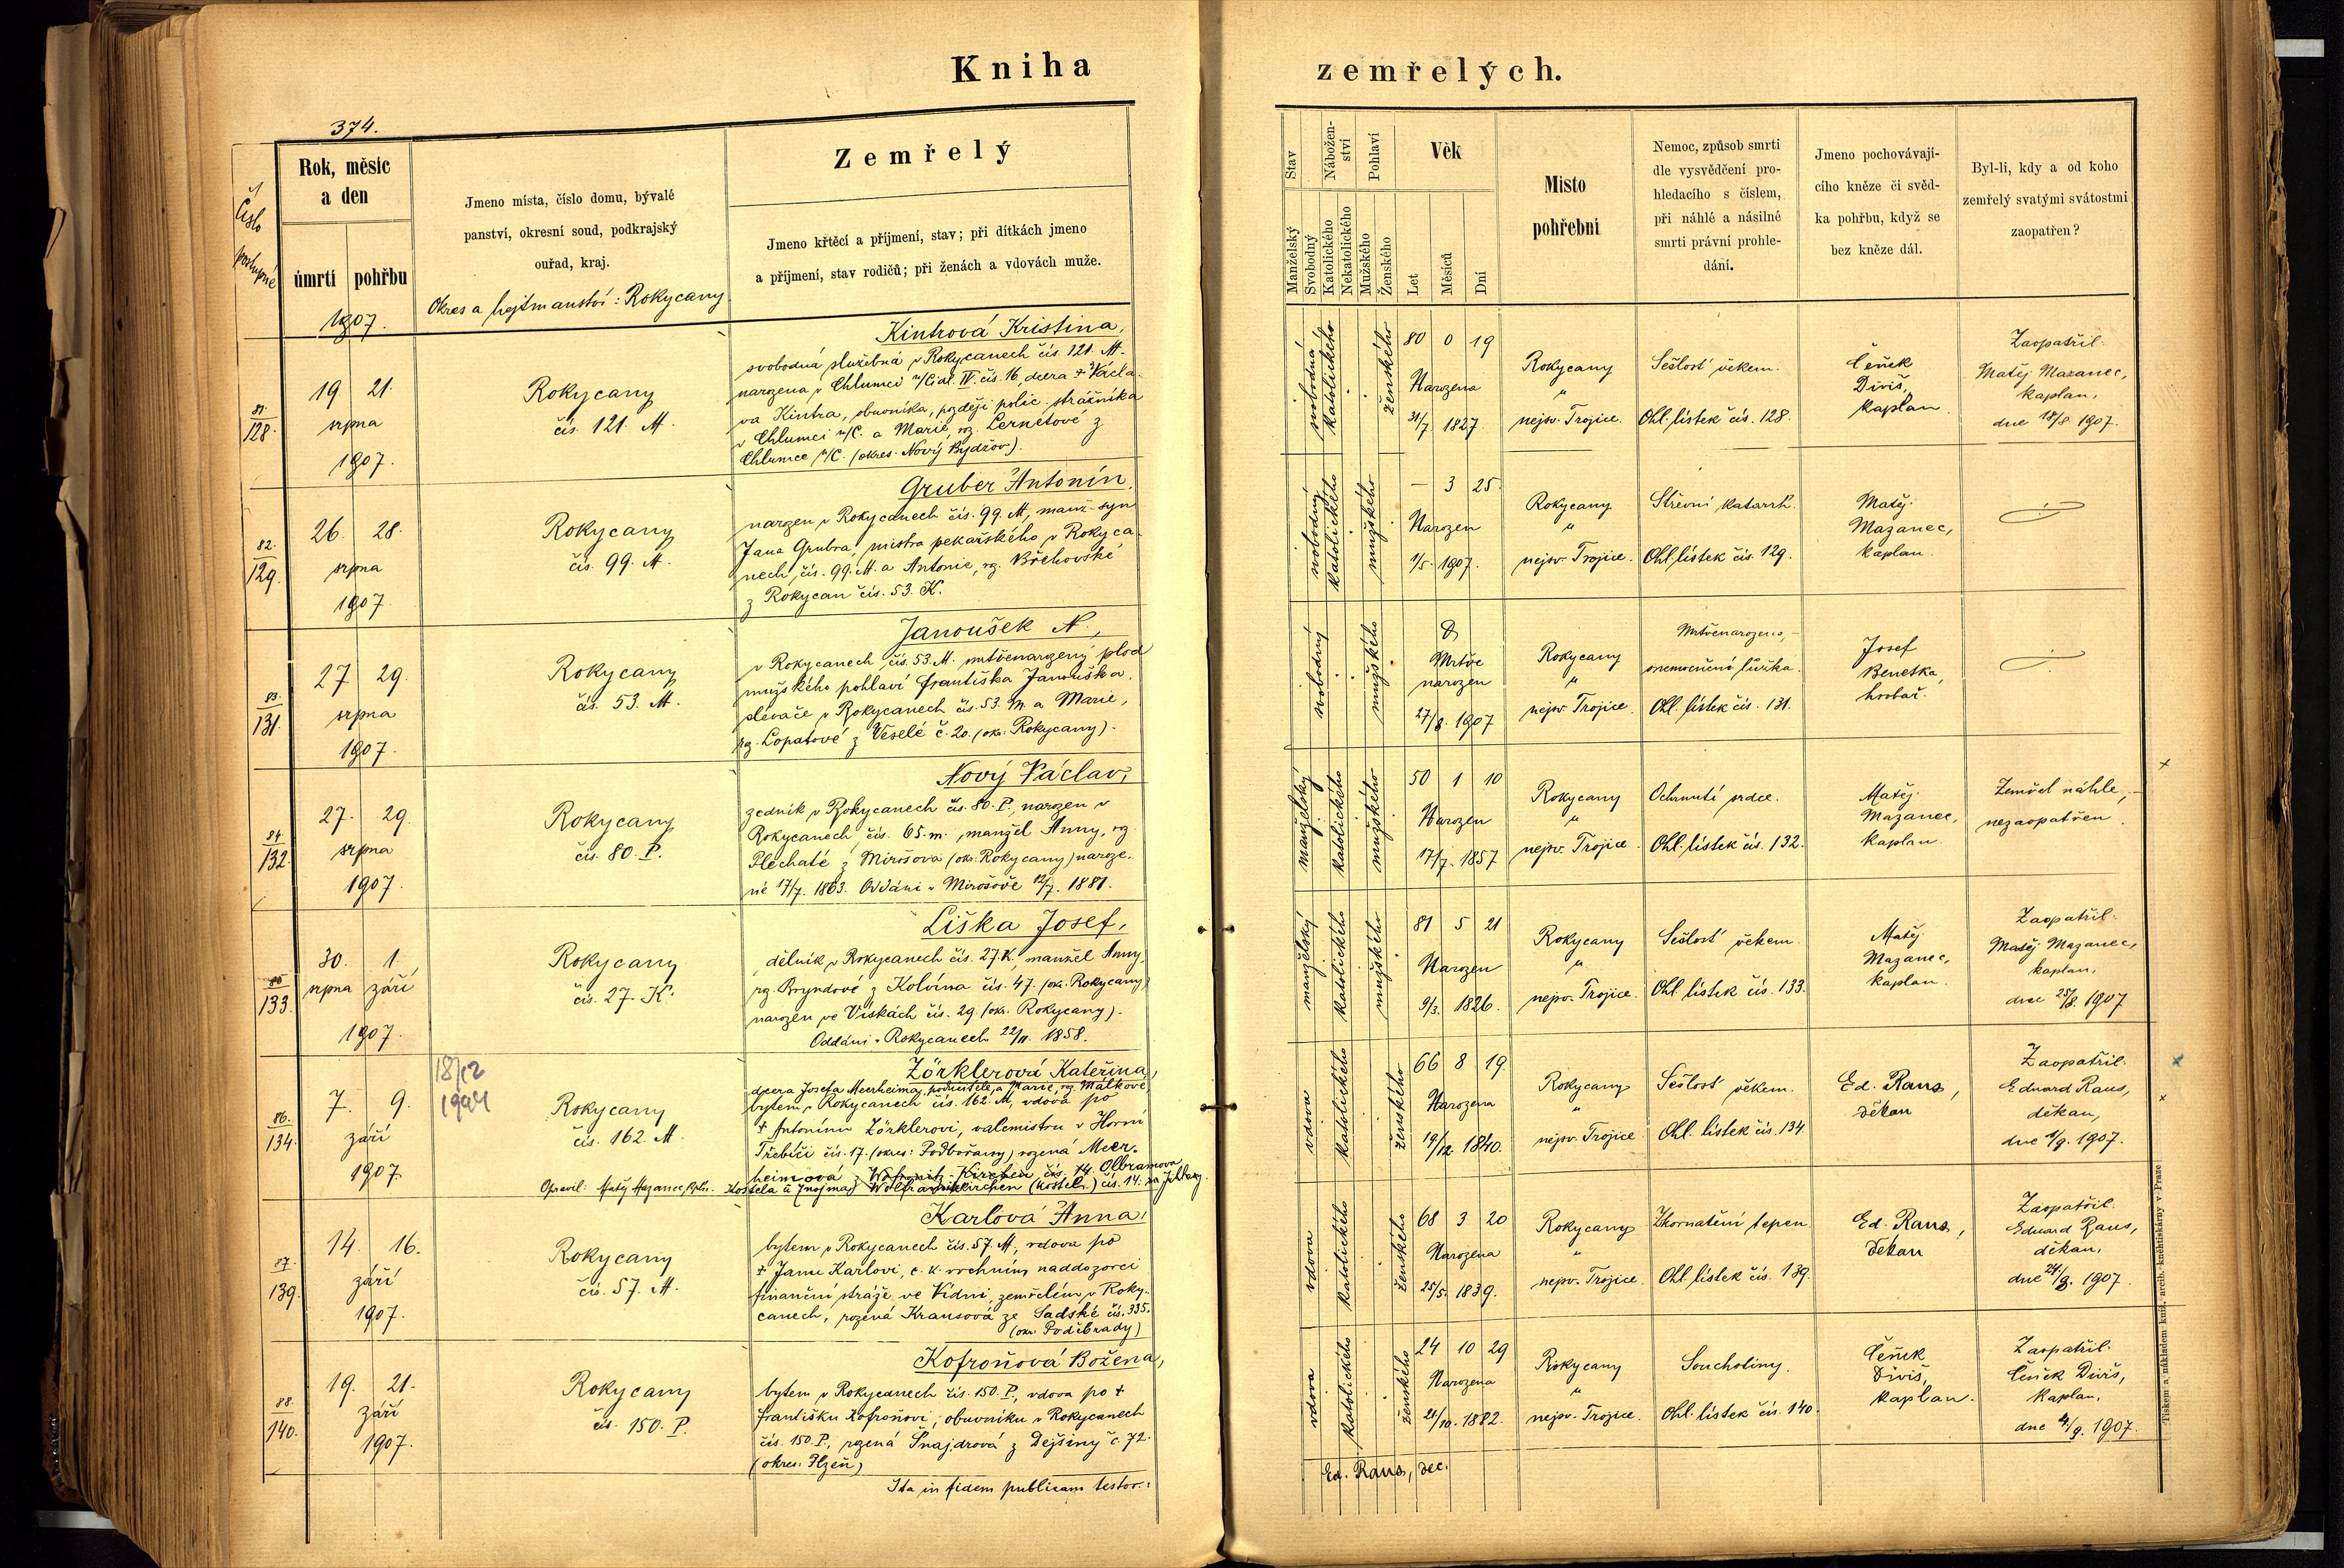 Kniha
zemřelých.
374.
Číslo
postupné
Rok, měsíc
a den
úmrtí
pohřbu
1907.
Jmeno místa, číslo domu, bývalé
panství, okresní soud, podkrajský
ouřad, kraj.
Okres a hejtmanství: Rokycany
Zemřelý
Jmeno křtěcí a příjmení, stav; při dítkách jmeno
a příjmení, stav rodičů; při ženách a vdovách muže.
Stav
Manželský
Svobodný
Nábožen-
ství
Katolického
Nekatolického
Pohlaví
Mužského
Ženského
Věk
Let
Měsíců
Dní
Misto
pohřební
Nemoc, způsob smrti
dle vysvědčení pro-
hledacího s číslem,
při náhlé a násilné
smrti právní prohle-
dání.
Jmeno pochovávají-
cího kněze či svěd-
ka pohřbu, když se
bez kněze dál.
Byl-li, kdy a od koho
zemřelý svatými svátostmi
zaopatřen?
81.
128.
19. 21.
srpna
1907.
Rokycany
čís. 121. M.
Kintrová Kristina,
svobodná služebná v Rokycanech čís. 121. M.
narozena v Chlumci n/Cidl. IV. čís. 16, dcera † Václa-
va Kintra, obuvníka, později polic. strážníka
v Chlumci n/C. a Marie, roz. Lernetové z
Chlumce n/C. (okres. Nový Bydžov).
svobodná
katolického
ženského
80 0 19
Narozena
31/7. 1827.
Rokycany
"
nejsv. Trojice.
Sešlost věkem.
Ohl. lístek čís. 128.
Čeněk
Diviš,
kaplan.
Zaopatřil
Matěj Mazanec,
kaplan,
dne 18/8. 1907.
82.
129.
26. 28.
srpna
1907.
Rokycany
čís. 99. M.
Gruber Antonín,
narozen v Rokycanech čís. 99. M., manž. syn
Jana Grubra, mistra pekařského v Rokyca-
nech, čís. 99. M. a Antonie, roz. Břehovské
z Rokycan čís. 53. K.
svobodný
katolického
mužského
– 3 25.
Narozen
1/5. 1907.
Rokycany
"
nejsv. Trojice.
Střevní katarrh.
Ohl. lístek čís. 129.
Matěj
Mazanec,
kaplan.
83.
131.
27 29.
srpna
1907.
Rokycany
čís. 53. M.
Janoušek N.,
v Rokycanech čís. 53. M. mrtvěnarozený plod
mužského pohlaví Františka Janouška,
slévače v Rokycanech čís. 53. M. a Marie,
roz. Lopatové z Veselé č. 20. (okr. Rokycany).
svobodný
mužského
Mrtvě
narozen
27/8. 1907
Rokycany
"
nejsv. Trojice.
Mrtvěnarozeno,
onemocnění lůžka.
Ohl. lístek čís. 131.
Josef
Benetka,
hrobař.
84.
132.
27. 29.
srpna
1907.
Rokycany
čís. 80. P.
Nový Václav,
zedník v Rokycanech čís. 80. P., narozen v
Rokycanech, čís. 65. m., manžel Anny, roz.
Plechaté z Mirošova (okr. Rokycany) naroze-
né 17/7. 1863. Oddáni v Mirošově 12/7. 1881.
manželský
katolického
mužského
50 1 10
Narozen
17/7. 1857
Rokycany
"
nejsv. Trojice.
Ochrnutí srdce.
Ohl. lístek čís. 132.
Matěj
Mazanec,
kaplan.
Zemřel náhle,
nezaopatřen.
133.
30. 1.
srpna září
1907.
Rokycany
čís. 27. K.
Liška Josef,
dělník v Rokycanech čís. 27. K. manžel Anny,
roz. Bryndové z Kolvína čís. 47. (okr. Rokycany)
narozen ve Vískách čís. 29. (okr. Rokycany).
Oddáni v Rokycanech 22/11. 1858.
manželský
katolického
mužského
81 5 21
Narozen
9/3. 1826.
Rokycany
"
nejsv. Trojice.
Sešlost věkem.
Ohl. lístek čís. 133.
Matěj
Mazanec,
kaplan.
Zaopatřil
Matěj Mazanec,
kaplan,
dne 25/8. 1907
86.
134.
7. 9.
září
1907.
Rokycany
čís. 162. M.
Zörklerová Kateřina,
dcera Josefa Meerheima, podučitele, a Marie, roz. Málkové,
bytem v Rokycanech čís. 162. M., vdova po
† Antonínu Zörklerovi, valcmistru v Horní
Třebčici čís. 17. (okres: Podbořany) rozená Meer-
heimová z čís. 14. Olbramova
Opravil: Matěj Mazanec, kpln. Kostela (u Znojma) Wolframskirchen (kostel.) čís. 14.
vdova
katolického
ženského
66 8 19.
Narozena
19/12. 1840.
Rokycany
"
nejsv. Trojice
Sešlost věkem.
Ohl. lístek čís. 134.
Ed. Raus,
děkan
Zaopatřil
Eduard Raus,
děkan,
dne 1/9. 1907.
87.
139.
14. 16.
září
1907.
Rokycany
čís. 57. M.
Karlová Anna,
bytem v Rokycanech čís. 57. M., vdova po
† Janu Karlovi, c. k. vrchním naddozorci
finanční stráže ve Vídni, zemřelém v Roky-
canech, rozená Krausová ze Sadské čís. 335.
(okr. Poděbrady)
vdova
katolického
ženského
68 3 20
Narozena
25/5. 1839.
Rokycany
"
nejsv. Trojice.
Zkornatění tepen
Ohl. lístek čís. 139.
Ed. Raus,
děkan
Zaopatřil
Eduard Raus,
děkan,
dne 24/8. 1907.
88.
140.
19. 21.
září
1907.
Rokycany
čís. 150. P.
Kofroňová Božena,
bytem v Rokycanech čís. 150. P., vdova po †
Františku Kofroňovi, obuvníku v Rokycanech
čís. 150. P., rozená Šnajdrová z Dejšiny č. 72.
(okres: Plzeň)
vdova
katolického
ženského
24 10 29
Narozena
21/10. 1882.
Rokycany
"
nejsv. Trojice.
Souchotiny.
Ohl. lístek čís. 140.
Čeněk
Diviš,
kaplan.
Zaopatřil
Čeněk Diviš,
kaplan,
dne 4/9. 1907.
Ita in fidem publicam testor:
Ed. Raus, dec.
Tiskem a nákladem kníž. arcib. knihtiskárny v Praze